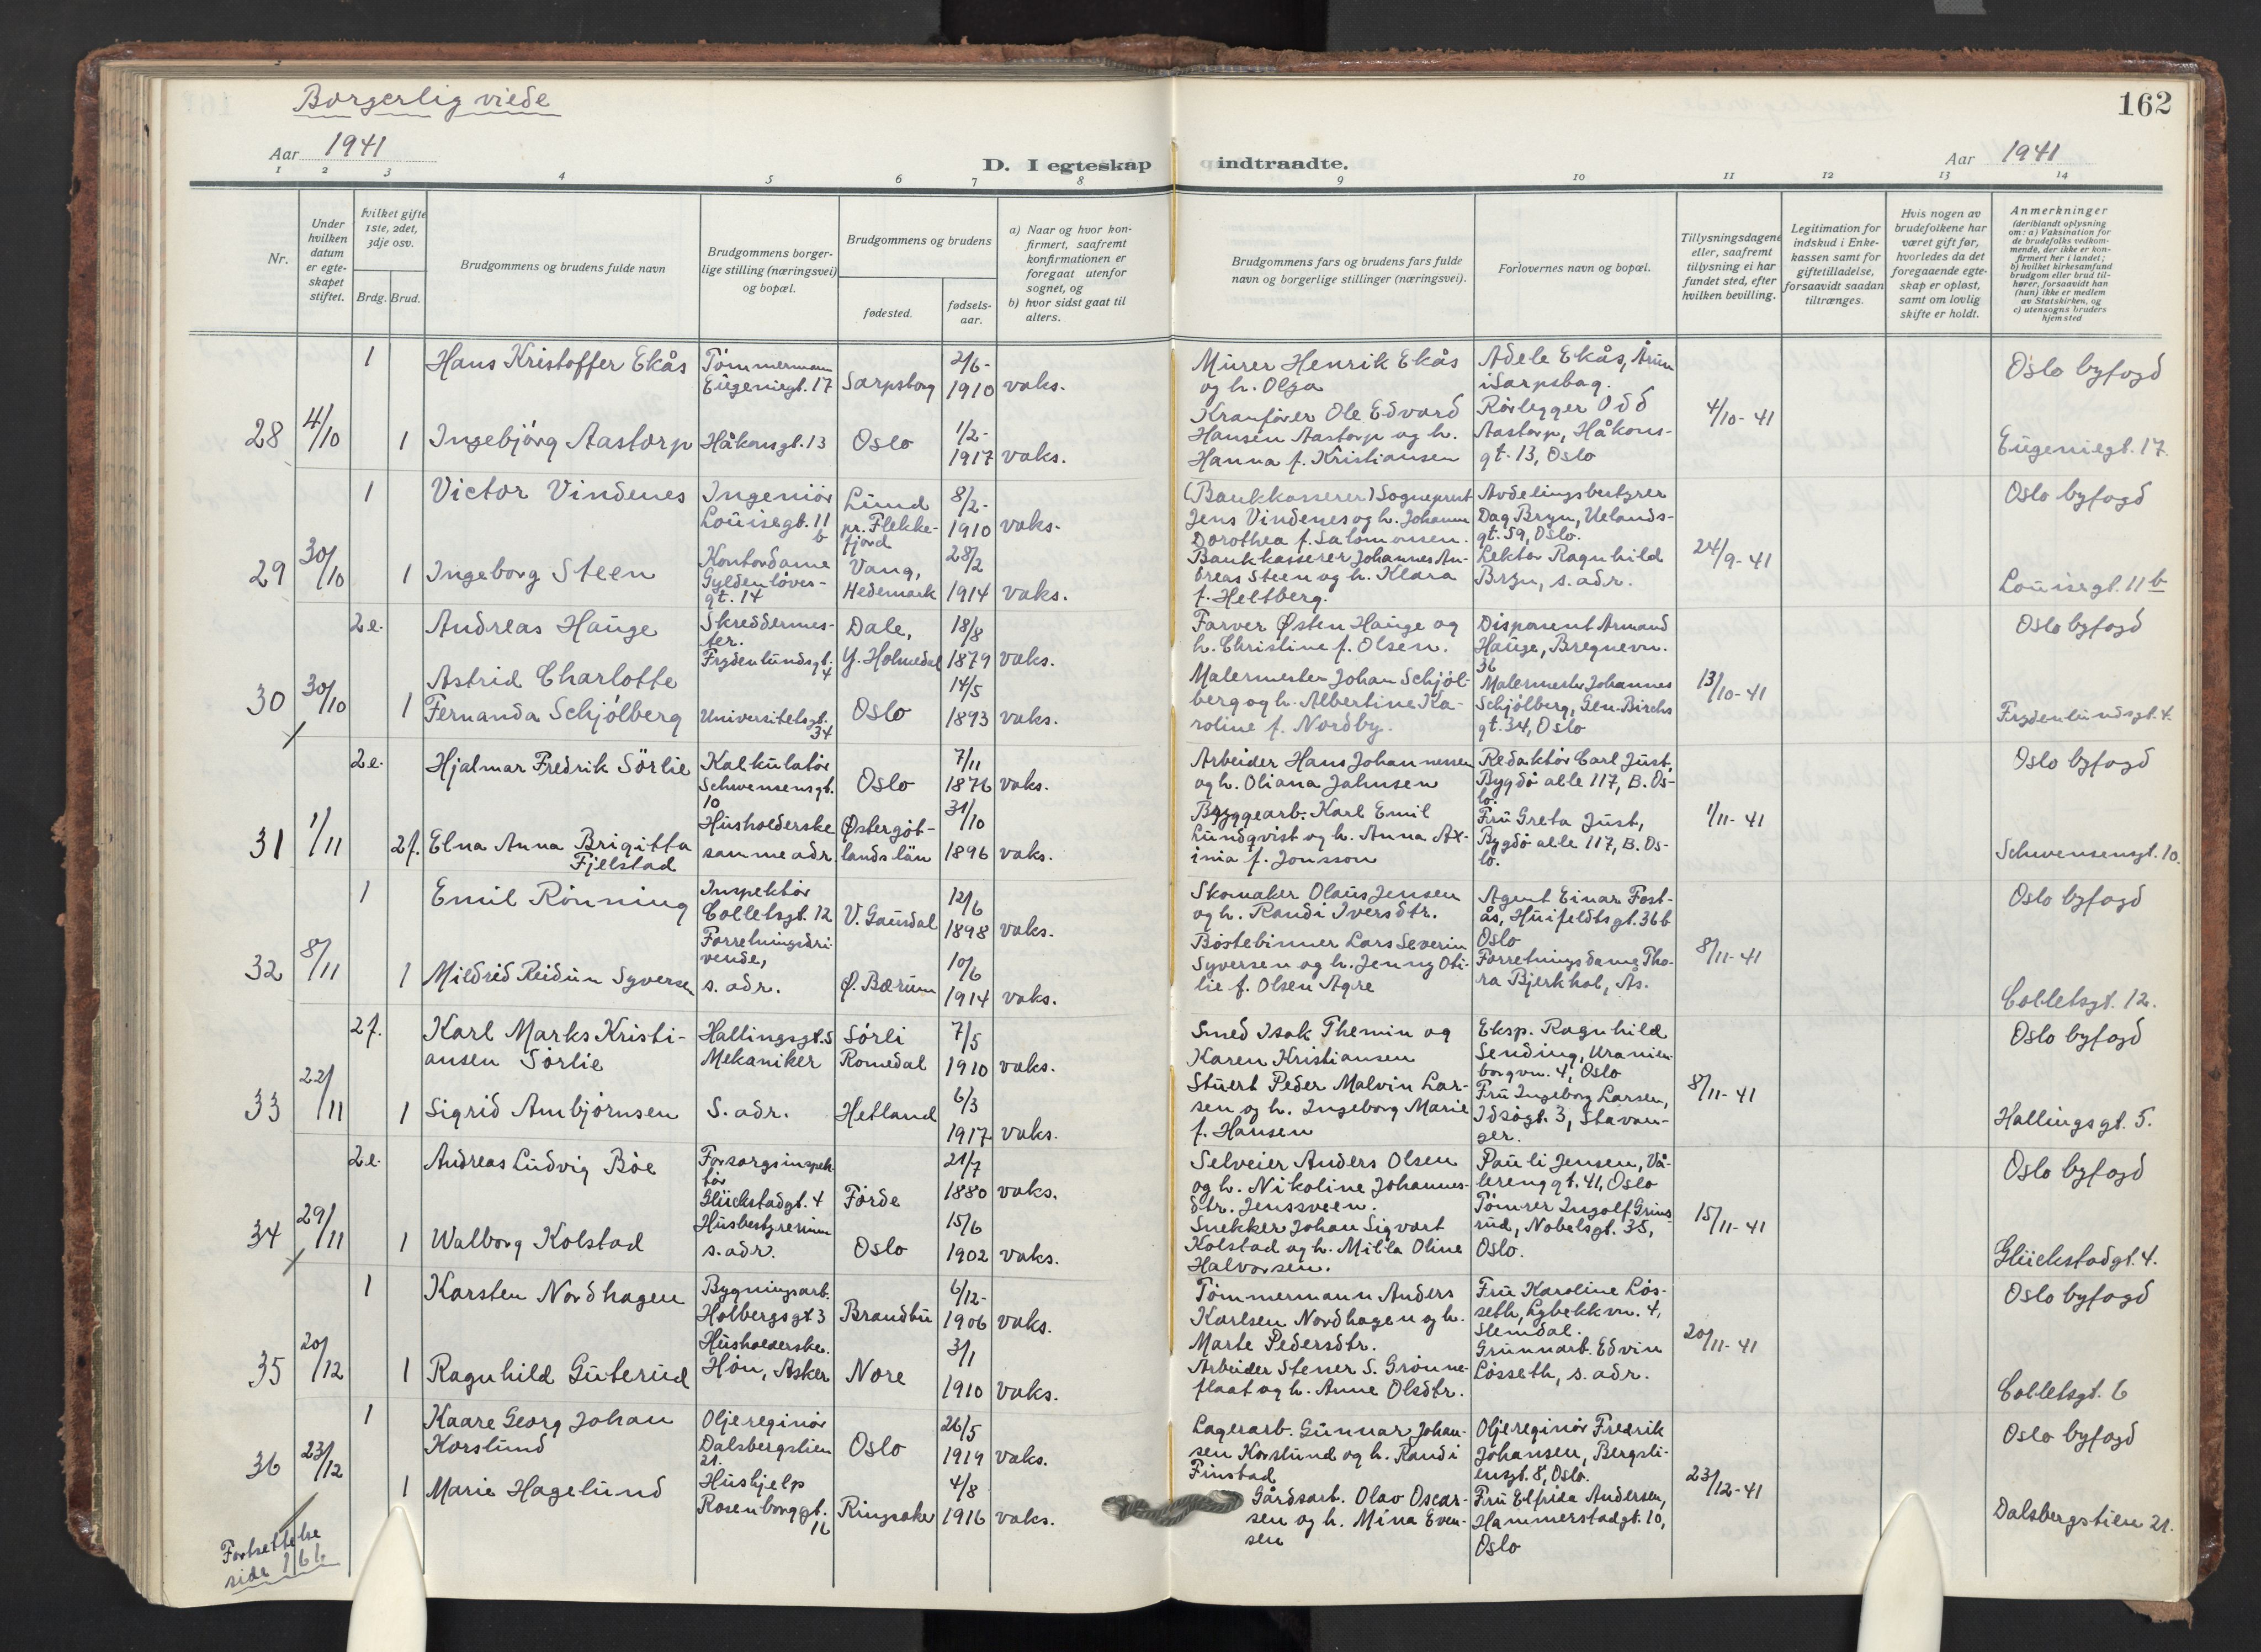 Borgerlig viede
162
Aar 1941
D. I egteskap indtraadte.
Aar 1941
1 2 3 4 5 6 7 8 9 10 11 12 13 14
Nr.
Under hvilken datum er egteskapet stiftet.
hvilket gifte 1ste, 2det, 3dje osv.
Brdg. Brud.
Brudgommens og brudens fulde navn
Brudgommens borgerlige stilling (næringsvei) og bopæl.
Brudgommens og brudens
fødested.
fødselsaar.
a) Naar og hvor konfirmert, saafremt konfirmationen er foregaat utenfor sognet, og
b) hvor sidst gaat til alters.
Brudgommens fars og brudens fars fulde navn og borgerlige stillinger (næringsvei).
Forlovernes navn og bopæl.
Tillysningsdagene eller, saafremt tillysning ei har fundet sted, efter hvilken bevilling.
Legitimation for indskud i Enkekassen samt for giftetilladelse, forsaavidt saadan tiltrænges.
Hvis nogen av brudefolkene har været gift før, hvorledes da det foregaaende egteskap er opløst, samt om lovlig skifte er holdt.
Anmerkninger
(deriblandt oplysning om: a) Vaksination for de brudefolks vedkommende, der ikke er konfirmert her i landet; b) hvilket kirkesamfund brudgom eller brud tilhører, forsaavidt han (hun) ikke er medlem av Statskirken, og c) utensogns bruders hjemsted
28 4/10
1 Hans Kristoffer Ekås
Tømmermann
Eugeniegt. 17
Sarpsborg
2/6-
1910 vaks.
Murer Henrik Ekås
og h. Olga
Adele Ekås,
i Sarpsbog.
Oslo byfogd
1 Ingebjørg Aastorp
Håkonsgt. 13
Oslo
1/2-
1917 vaks.
Kranfører Ole Edvard
Hansen Aastorp og h.
Hanna f. Kristiansen
Rørlegger Odd
Aastorp, Håkons-
gt. 13, Oslo
4/10-41
Eugeniegt. 17.
29 30/10
1 Victor Vindenes
Ingeniør
Louisegt. 11
b
Lund
pr. Flekke-
fjord
8/2-
1910 vaks.
(Bankkasserer) Sogneprest
Jens Vindenes og h. Johanne
Dorothea f. Salomonsen.
Avdelingsbestyrer
Dag Bryn, Uelands-
gt. 59, Oslo.
Oslo byfogd
1 Ingeborg Steen
Kontordame
Gyldenløves-
gt. 14
Vang,
Hedemark
28/2
1914 vaks.
Bankkasserer Johannes An-
dreas Steen og h. Klara
f. Heltberg.
Lektor Ragnhild
Bryn, s. adr.
24/9-41
Louisegt. 11 b
30 30/10
2e. Andreas Hauge
Skreddermes-
ter.
Frydenlundsgt.
4
Dale,
Y. Holmedal
18/8
1879 vaks.
Farver Østen Hauge og
h. Christine f. Olsen.
Disponent Armand
Hauge, Bregnevn.
36
Oslo byfogd
1 Astrid Charlotte
Fernanda Schjølberg
Universitetsgt.
34
Oslo
14/5
1893 vaks.
Malermester Johan Schjøl-
berg og h. Albertine Ka-
roline f. Nordby.
Malermester Johannes
Schjølberg, Gen. Birchs
gt. 34, Oslo
13/10-41
Frydenlundsgt. 4.
31 1/11
2e. Hjalmar Fredrik Sørlie
Kalkulatør
Schwensensgt.
10
Oslo
7/11
1876 vaks.
Arbeider Hans Johannessen
og h. Oliana Jahnsen
Redaktør Carl Just,
Bygdø alle 117, B. Os-
lo.
Oslo byfogd
2f. Elna Anna Brigitta
Fjelstad
Husholderske
samme adr.
Østergöt-
lands län
31/10
1896 vaks.
Bryggearb. Karl Emil
Lundqvist og h. Anna Ax-
inia f. Jonsson
Fru Greta Just,
Bygdø alle 117, B. Os-
lo.
1/11-41
Schwensensgt. 10.
32 8/11
1 Emil Rønning
Inspektør
Colletsgt. 12
V. Gausdal
12/6
1898 vaks.
Skomaker Olaus Jensen
og h. Randi Iversdtr.
Agent Einar Fost-
ås, Huitfeldtsgt. 36b
Oslo
Oslo byfogd
1 Mildrid Reidun Syversen
Forretningsdri-
vende,
s. adr.
Ø. Bærum
10/6
1914 vaks.
Børstebinner Lars Severin
Syversen og h. Jenny Oti-
lie f. Olsen Agre
Forretningsdame Tho-
ra Bjerkhol, Ås.
8/11-41
Colletsgt. 12.
33 22/11
2f. Karl Marks Kristi-
ansen Sørlie
Hallingsgt. 5
Mekaniker
Sørli
Romedal
7/5
1910 vaks.
Smed Isak Themin og
Karen Kristiansen
Eksp. Ragnhild
Sending, Uranien-
borgvn. 4, Oslo
Oslo byfogd
1 Sigrid Ambjørnsen
S. adr.
Hetland
6/3
1917 vaks.
Stuert Peder Malvin Lar-
sen og h. Ingeborg Marie
f. Hansen
Fru Ingeborg Larsen,
Idsøgt. 3, Stavan-
ger.
8/11-41
Hallingsgt. 5.
34 29/11
2e. Andreas Ludvig Bøe
Forsorgsinspek-
tør
Glückstadgt. 4
Førde
21/7
1880 vaks.
Selveier Anders Olsen
og h. Nikoline Johannes-
dtr. Jenssveen.
Pauli Jensen, Vå-
lerenggt. 41, Oslo
Oslo byfogd
1 Walborg Kolstad
Husbestyrerinne
s. adr.
Oslo
15/6
1902 vaks.
Snekker Johan Sigvart
Kolstad og h. Milla Oline
Halvorsen.
Tømrer Ingolf Grins-
rud, Nobelsgt. 35,
Oslo.
15/11-41
Glückstadgt. 4.
35 20/12
1 Karsten Nordhagen
Bygningsarb.
Holbergsgt 3
Brandbu
6/12-
1906 vaks.
Tømmermann Anders
Karlsen Nordhagen og h.
Marte Pedersdtr.
Fru Karoline Løs-
seth, Lybekkvn. 4,
Slemdal.
Oslo byfogd
1 Ragnhild Guterud
Husholderske.
Høn, Asker
Nore
3/1
1910 vaks.
Arbeider Stener S. Grønne-
flaat og h. Anne Olsdtr.
Grunnarb. Edvin
Løsseth, s. adr.
20/11-41
Colletsgt. 6
36 23/12
1 Kaare Georg Johan
Korslund
Oljereginør
Dalsbergstien
21.
Oslo
26/5
1919 vaks.
Lagerarb. Gunnar Johan-
sen Korslund og h. Randi
Finstad
Oljereginør Fredrik
Johansen, Bergsli-
ensgt. 8, Oslo.
Oslo byfogd
1 Marie Hagelund
Hushjelp
Rosenborggt.
16
Ringsaker
4/8
1916 vaks.
Gårdsarb. Olav Oscar-
sen og h. Mina Even-
sen
Fru Elfrida Andersen,
Hammerstadgt. 10,
Oslo
23/12-41
Dalsbergstien 21.
Fortsettelse
side 166